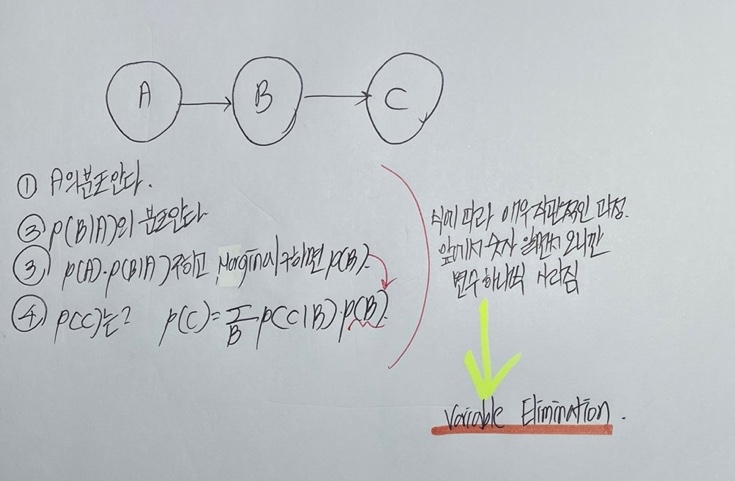 A B C
① A의 분포 안다.
② p(B|A)의 분포안다
③ p(A)·p(B|A) 구하고 Marginal 구하면 p(B).
④ p(C)는? p(C)=Σ_B p(C|B)·p(B).
식에 따라 매우 직관적인 과정.
앞에서 숫자 오니깐
변수 하나씩 사라짐
Variable Elimination.